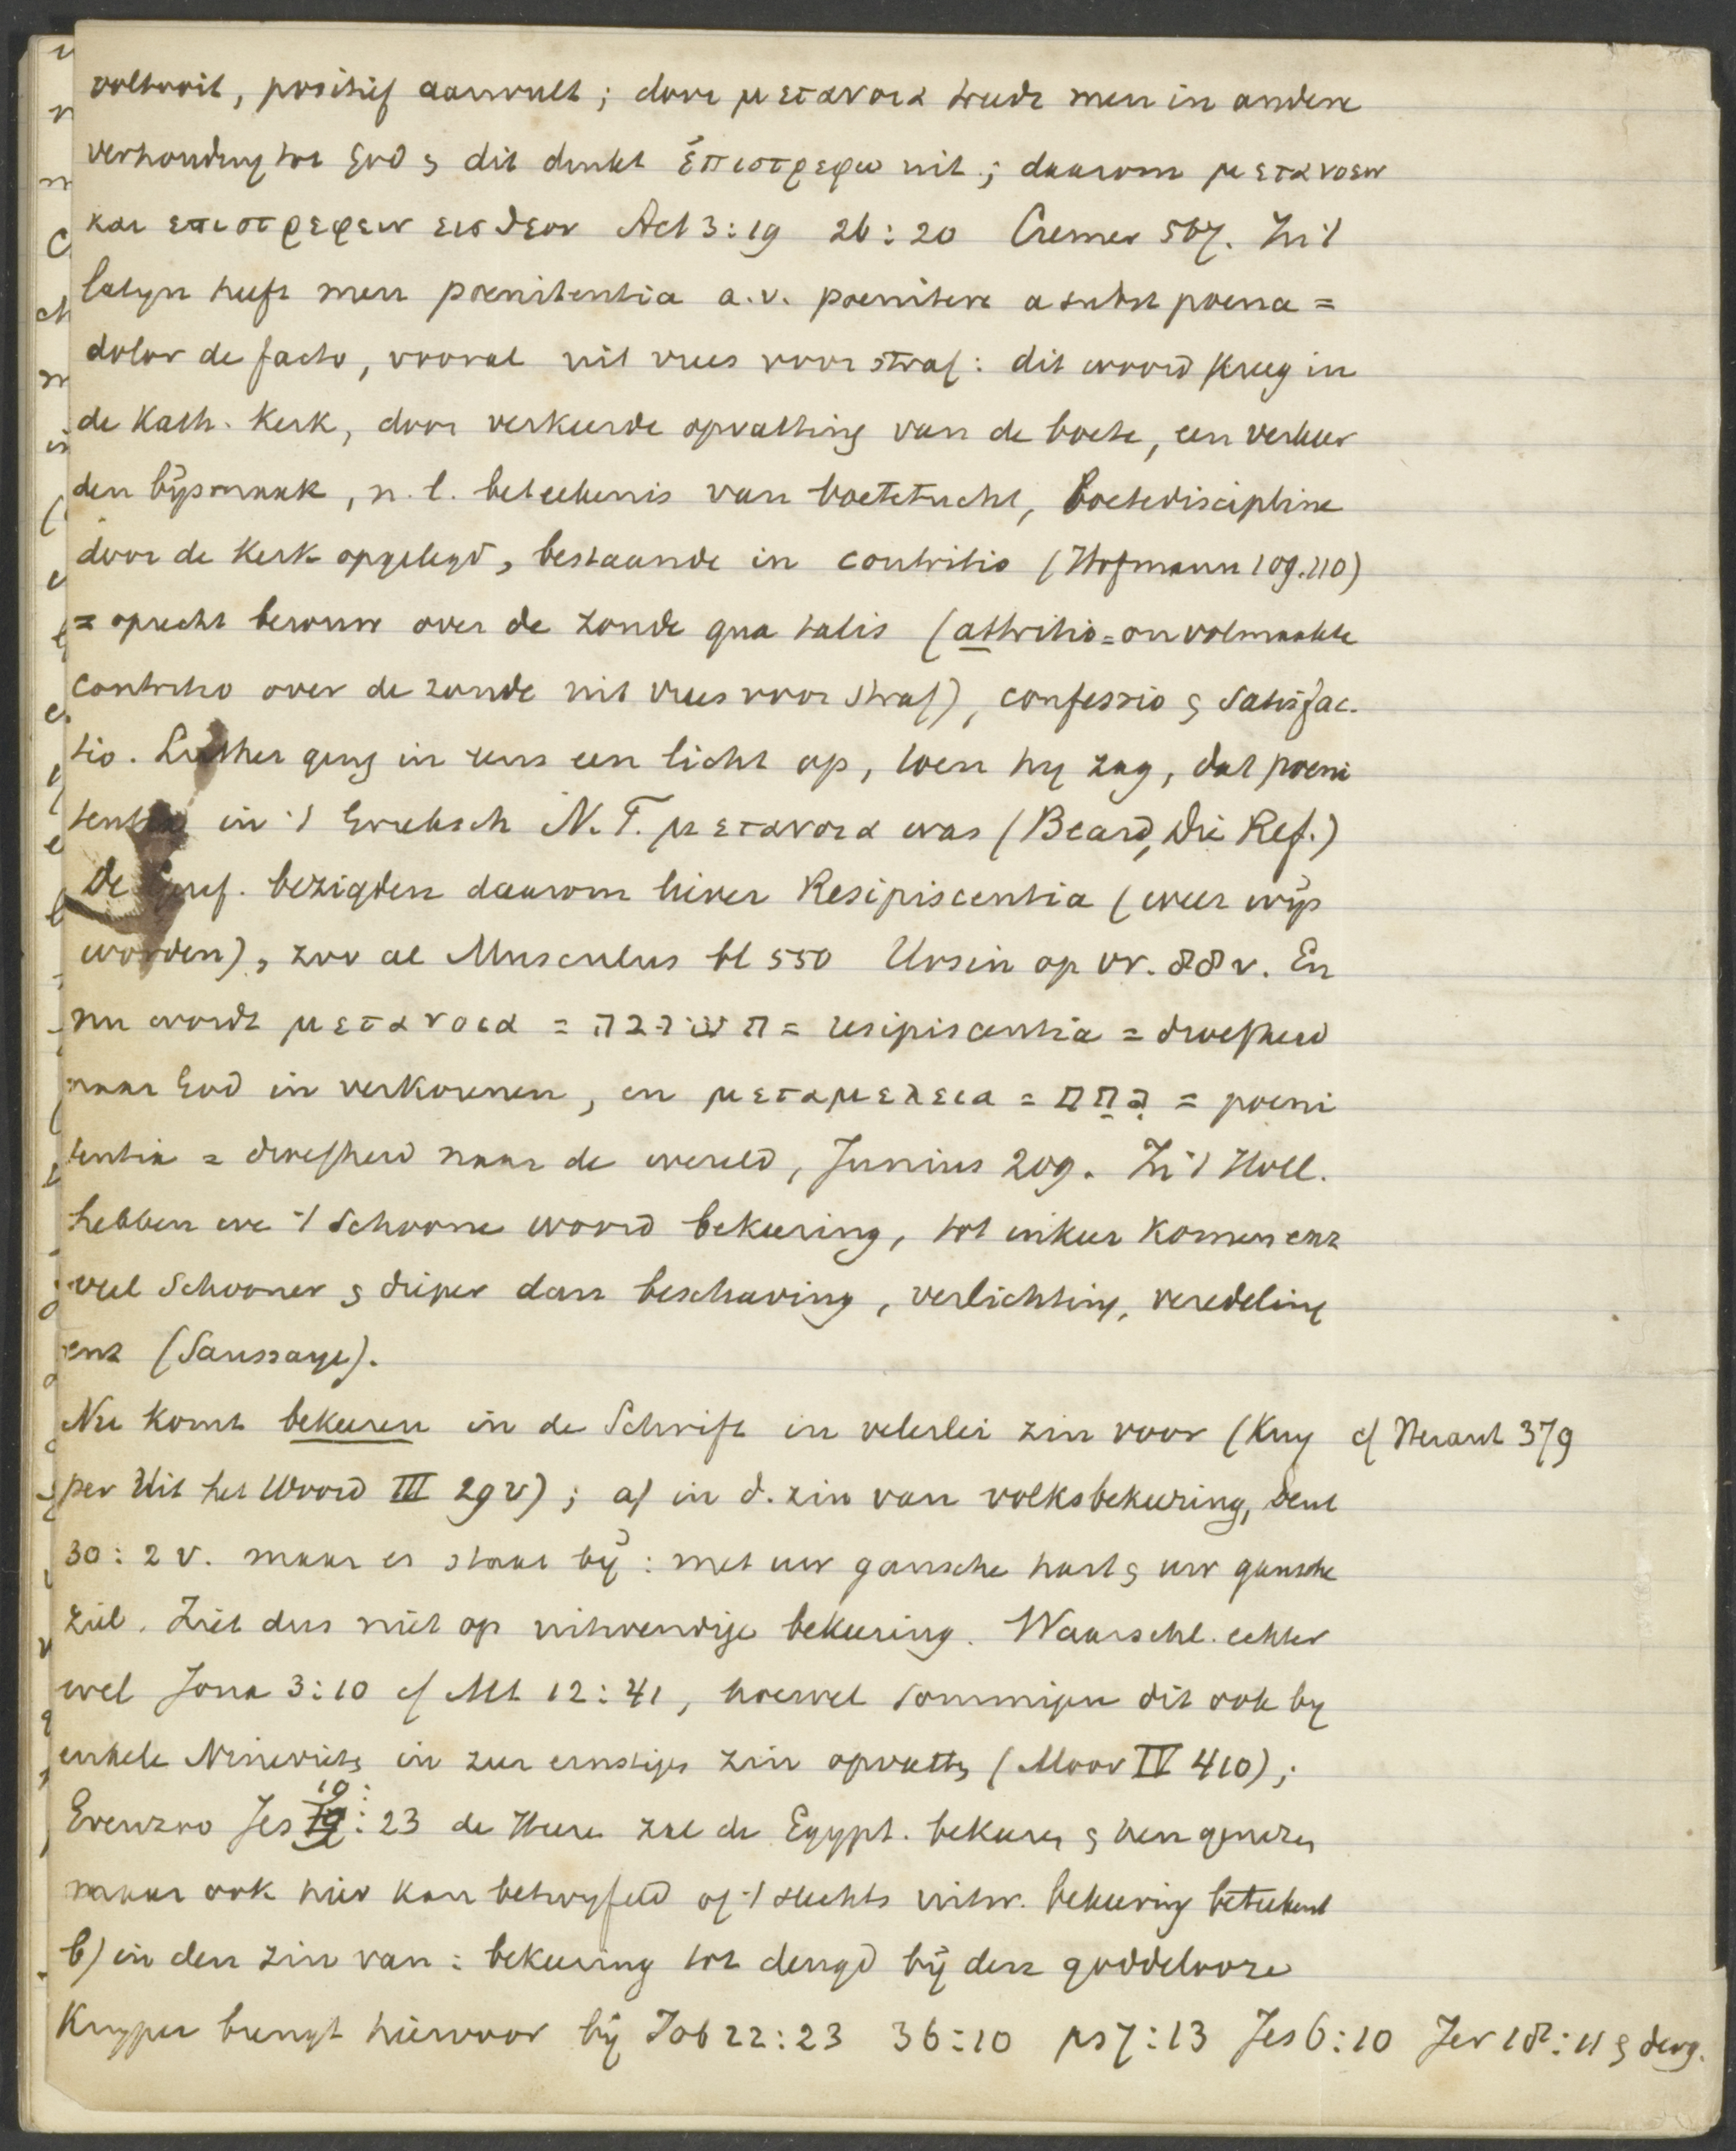 voltooit, positief aanvult; door μετανοια treedt men in andere
verhouding tot God & dit drukt ἐπιστρεφω uit; daarom μετανοειν
και επιστρεφειν εις θεον Act 3:19 26:20 Cremer 567. In 't
latyn heeft men poenitentia a.v. poenitere a subst poena =
dolor de facto, vooral uit vrees voor straf: dit woord kreeg in
de Kath. Kerk, door verkeerde opvatting van de boete, een verkeer
den bijsmaak, n.l. beteekenis van boetetucht, boetediscipline
door de Kerk opgelegd, bestaande in contritio (Hofmann 109.110)
= oprecht berouw over de zonde qua talis (attritio = onvolmaakte
contritio over de zonde uit vrees voor straf), confessio & satisfac-
tio. Luther ging in eens een licht op, toen hy zag, dat poeni
tentia in 't Grieksch N.T. μετανοια was (Beard, Die Ref.)
De Geref. bezigden daarom liever Resipiscentia (weer wijs
worden), zoo al Musculus bl 550 Ursin op vr. 88v. En
nu wordt μετανοια = תשובה = resipiscentia = droefheid
naar God in verkorenen, en μεταμελεια = נחם = poeni
tentia = droefheid naar de wereld, Junius 209. In 't Holl.
hebben we 't schoone woord bekeering, tot inkeer komen enz
veel schooner & dieper dan beschaving, verlichting, veredeling
enz (Saussaye).
Nu komt bekeeren in de Schrift in velerlei zin voor (Kuy cf Heraut 379
per Uit het Woord III 29v); a) in d. zin van volksbekeering, Deut
30:2 v. maar er staat bij: met uw gansche hart & uw gansche
ziel. Ziet dus niet op uitwendige bekeering. Waarschl. echter
wel Jona 3:10 cf Mt 12:41, hoewel sommigen dit ook by
enkele Ninevieten in zeer ernstigen zin opvatten (Moor IV 410);
Evenzoo Jes 19:23 de Heere zal de Egypt. bekeeren & hen genezen
maar ook hier kan betwyfeld of 't slechts uitw. bekeering beteekent
b) in den zin van: bekeering tot deugd bij den goddelooze
Kuyper brengt hiervoor bij Job 22:23 36:10 ps 7:13 Jes 6:10 Jer 18:11 & derg.